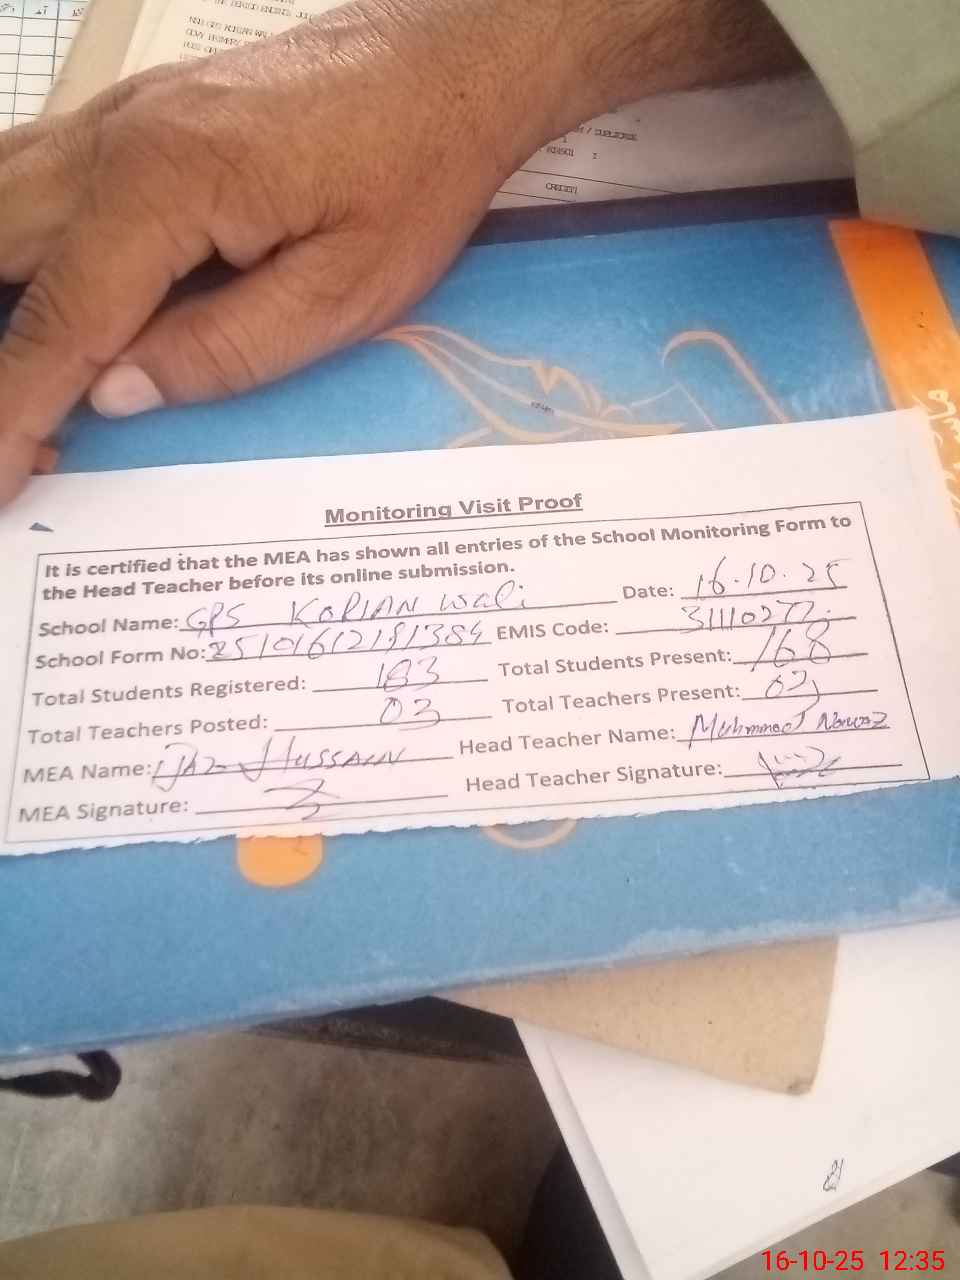 THE PERIOD ENDING
CREDIT
Monitoring Visit Proof
It is certified that the MEA has shown all entries of the School Monitoring Form to
the Head Teacher before its online submission.
School Name: GPS KORIAN Wali Date: 16.10.25
School Form No: 25101612191384 EMIS Code: 31110277
Total Students Registered: 183 Total Students Present: 168
Total Teachers Posted: 03 Total Teachers Present: 03
MEA Name: IJAZ HUSSAIN Head Teacher Name: Muhmmad Nawaz
MEA Signature: Head Teacher Signature:
16-10-25 12:35